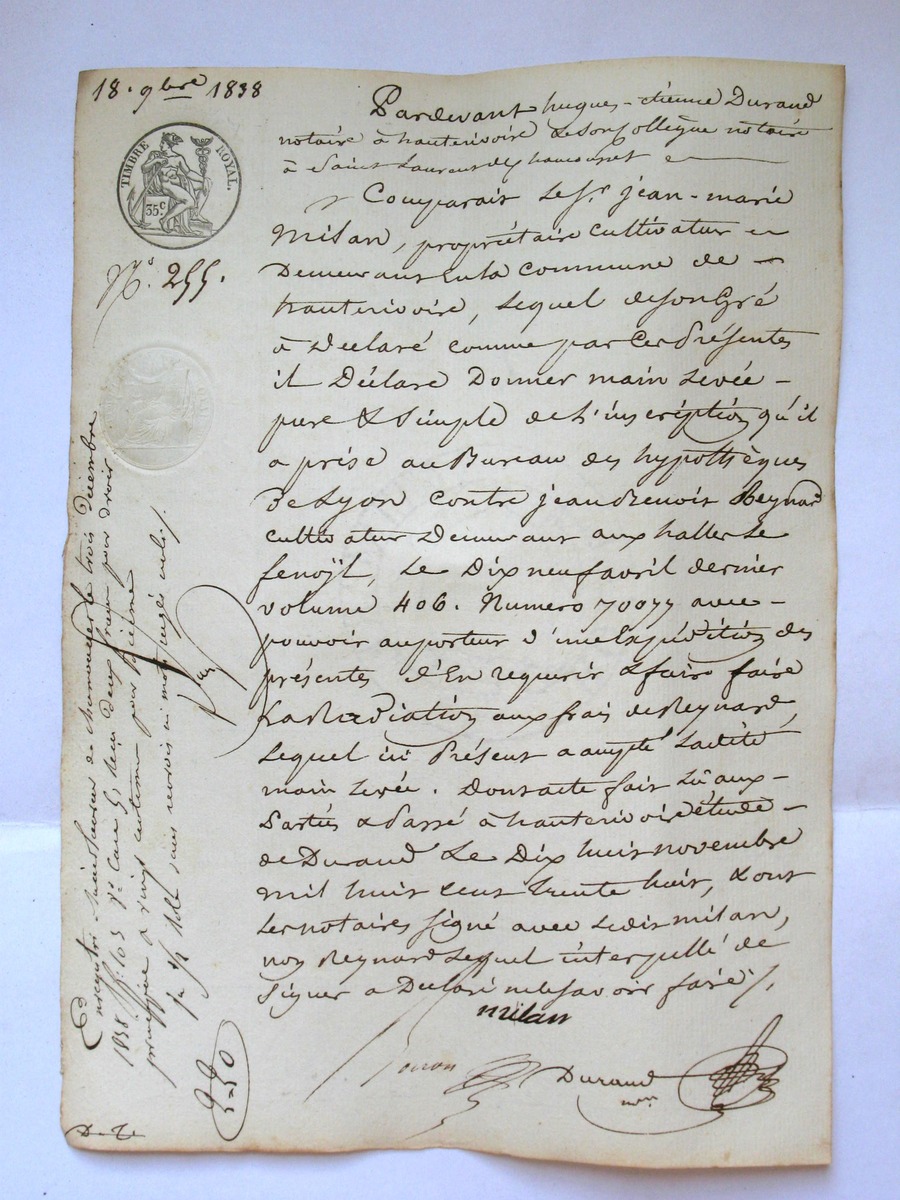 18. 9bre 1838
TIMBRE ROYAL.
35c
No. 255.
Pardevant hugues-étienne Durand
notaire à hauterivoire & son Collègue notaire
à Saint Laurent de chamousset
Comparait le Sr. jean-marie
Milan, propriétaire cultivateur
Demeurant en la commune de
hauterivoire, Lequel de son Gré
à Déclaré comme par Ces Présentes
il Déclare Donner main Levée
pure & Simple de L'inscription qu'il
a prise au Bureau des hypothèques
De Lyon contre jean Benoit Reynard
cultivateur Demeurant aux halles Le
fenoÿl, Le Dix neuf avril dernier
volume 406. Numero 70077 avec
pouvoir au porteur d'une Expédition des
présentes d'En requerir & faire faire
La Radiation aux frais de Reynard,
Lequel ici Présent a accepté Ladite
main Levée. Dont acte fait Lû aux
Parties & Passé à hauterivoire étude
de Durand Le Dix huit novembre
mil huit Cent trente huit, & ont
Les notaires signé avec Ledit milan,
non Reynard Lequel interpellé de
Signer a Déclaré ne le savoir faire
milan
Durand
Enregistré à Saint Laurent de chamousset le trois Décembre
1838 fo. 103 Vo. Case 5, reçu deux francs pour droit
principal & vingt centimes pour dixième
2 20